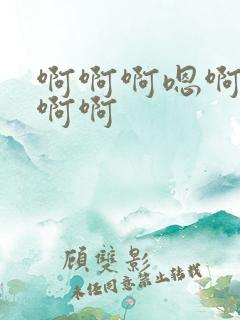 啊啊啊嗯啊
啊啊
顾雙影
未经同意禁止转载